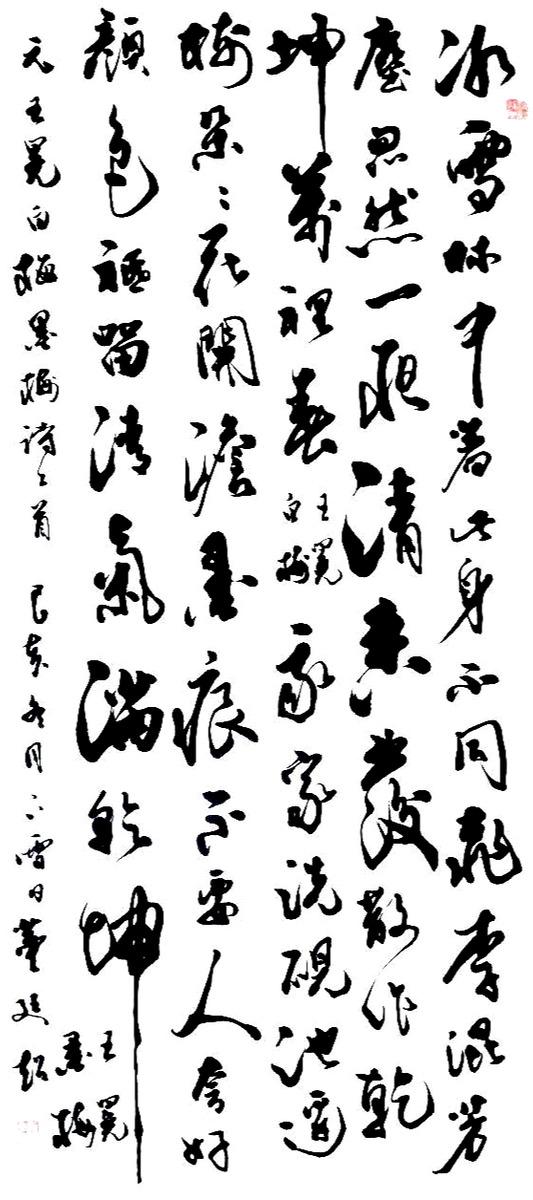 冰雪林中著此身不同桃李混芳
塵忽然一夜清香發散作乾
坤萬裡春
王冕
白梅
我家洗硯池邊
樹朵朵花開澹墨痕不要人夸好
顏色祗留清氣滿乾坤
王冕
墨梅
元王冕白梅墨梅詩二首 己亥冬月下雪日董廷超